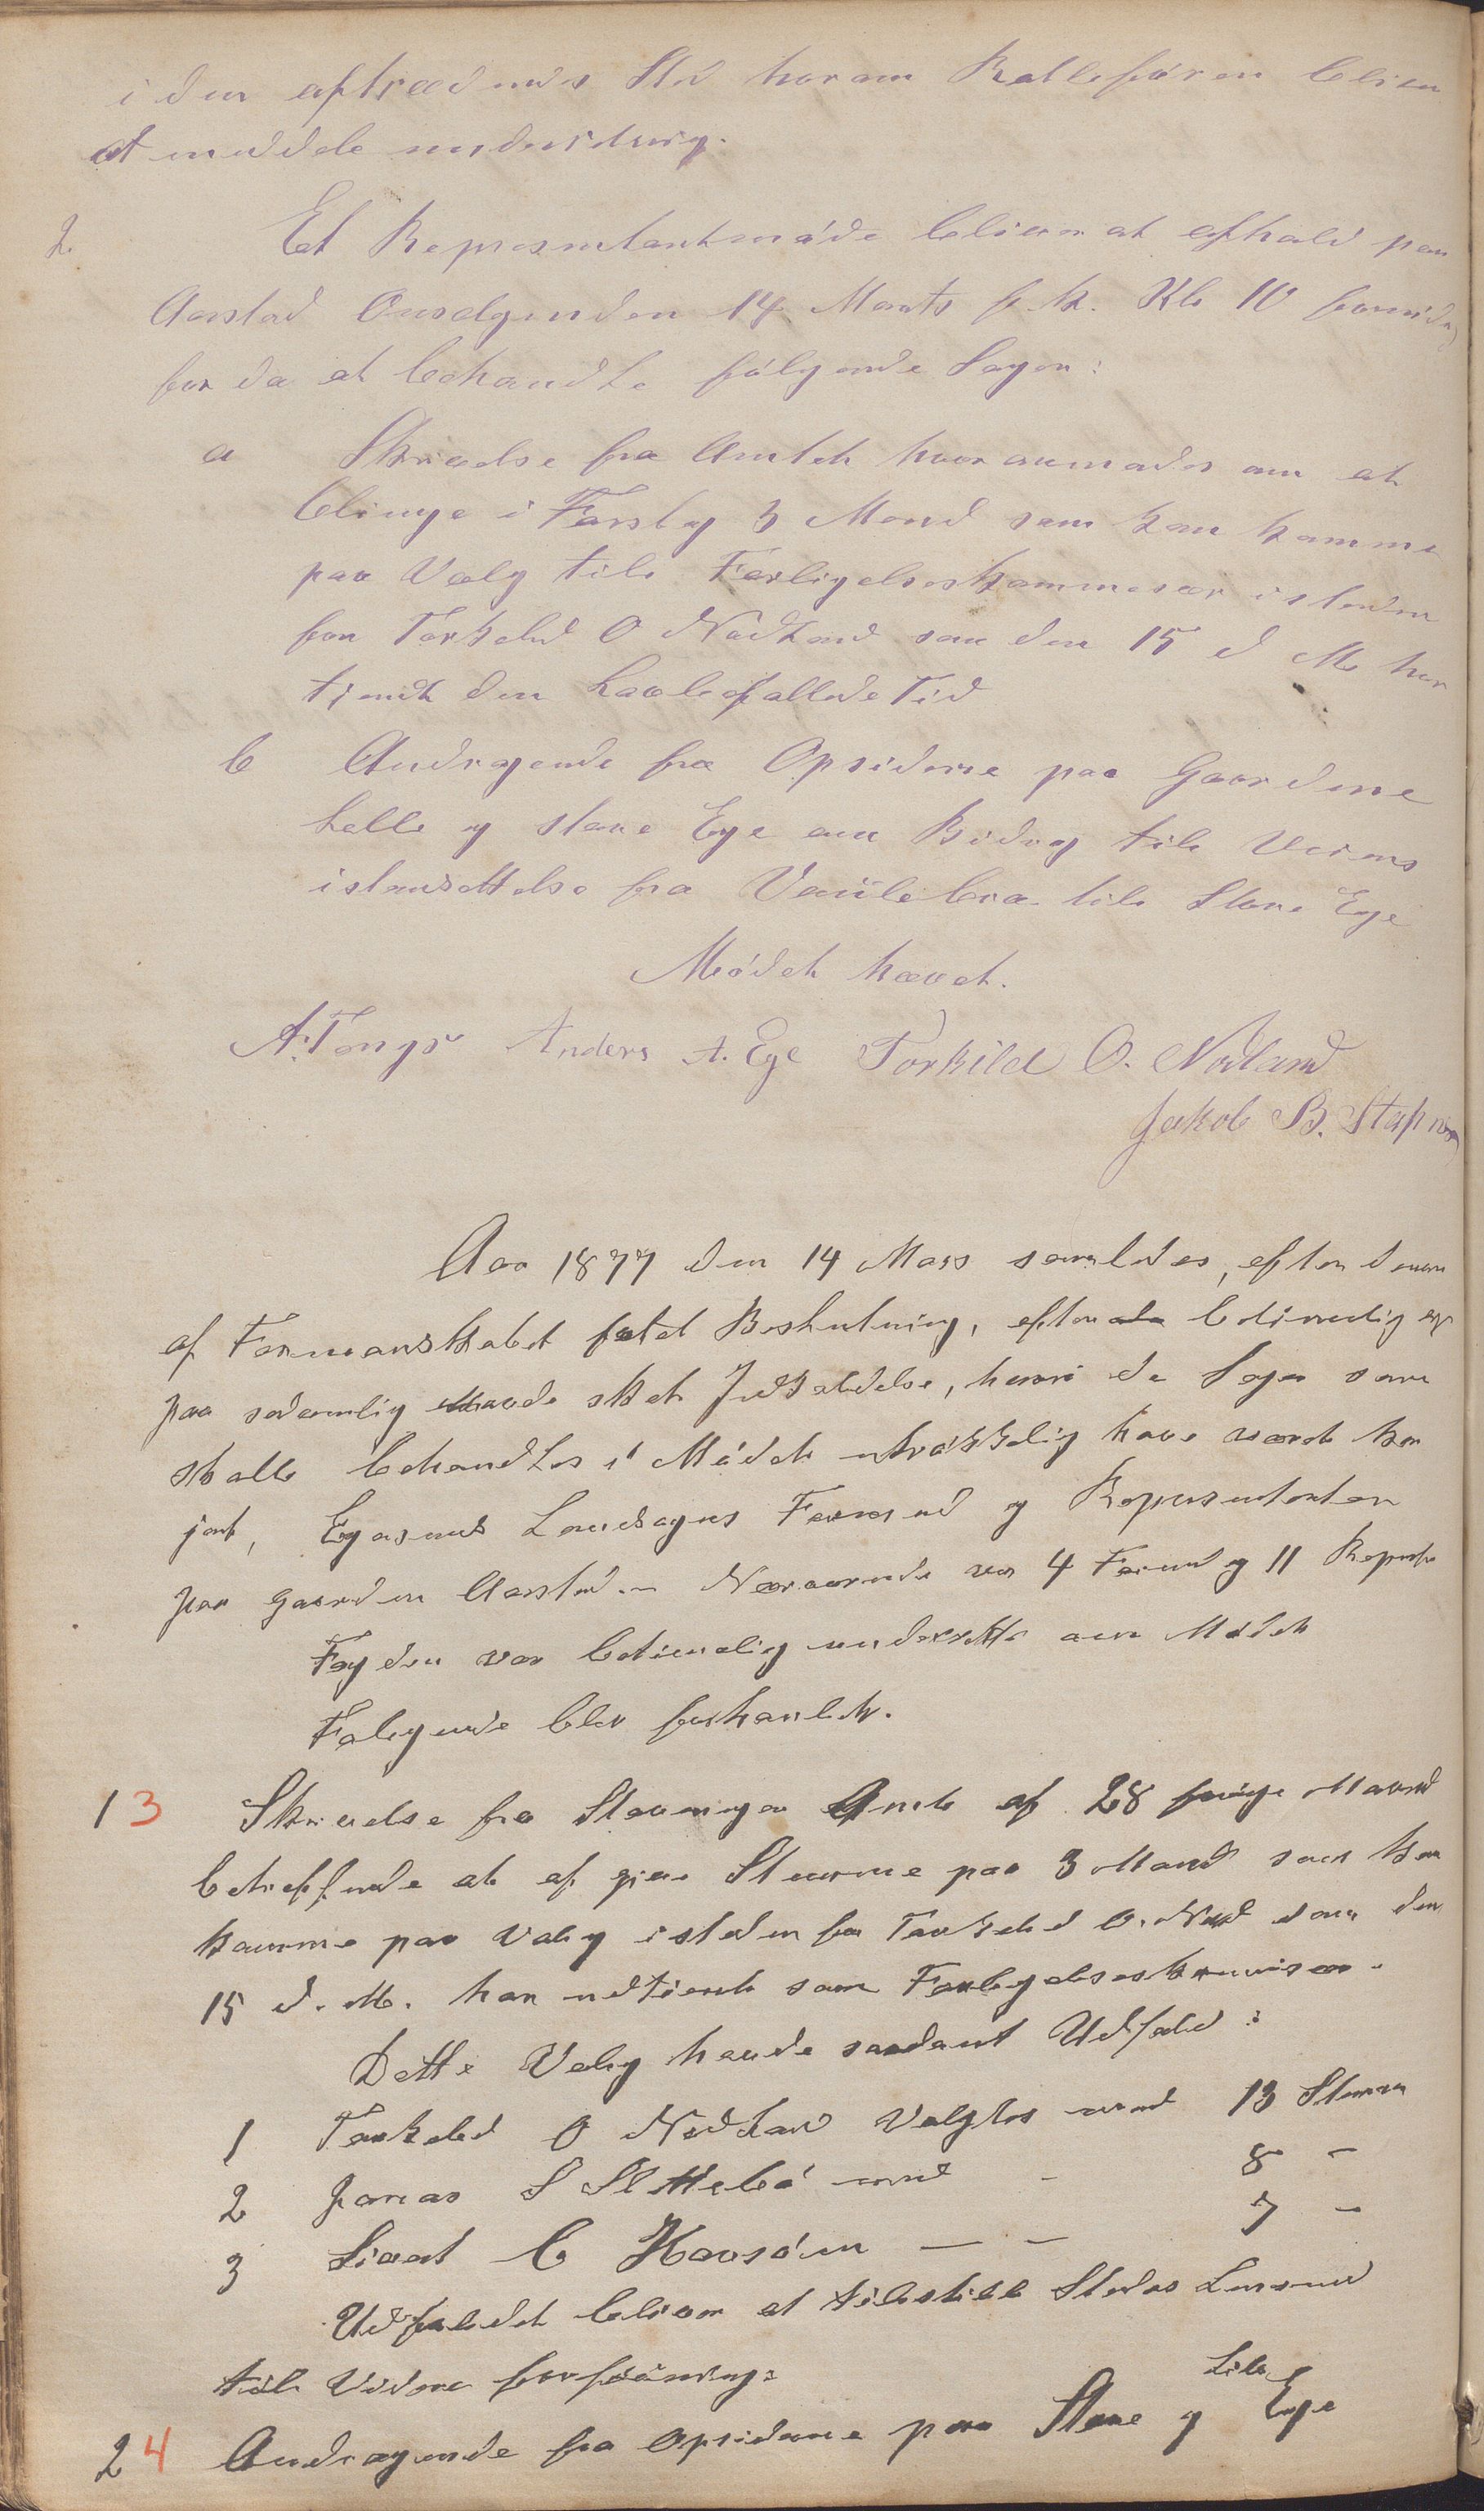 i den aftrædendes Sted horom Rolleføren bliver
at meddele underretning.
2 Et Representantmøde bliver at afhold paa
Aarstad Onsdagenden 14 Marts f. k. Kl 10 formidag
for da at behandle følgende Sager:
a Skrivelse fra Amtet hvor anmodes om at
bringe i Forslag 3 Mænd som kan komme
paa Valg till Forligelseskommesær isteden
for Torkeld O Nodland som den 15 d M har
tjendt den Lovbefallede Tid
b Andragende fra Opsiderne paa Gaardene
Lelle og Store Ege om Bidrag till Veiens
istandsettelse fra til Store Ege
Mødet hævet.
A. Tengs Anders A. Ege Torkild O. Nodland
Jakob B. Stapnes
Aar 1877 den 14 Mars samledes, efter denne
af Formanskabet fated Beslutning, efter betimelig og
paa sedvanlig Maade sket Indkaldelse, hvori de Sager som
skulle behandles i Mødet uttrøkkelig have været kun
jort, Egersunds Landsogns Formænd og Representanter
paa gaarden Aarstad. Nærværende var 4 Formd og 11 Repræs
Fogden var betimelig underrettet om Mødet
Følgende blev forhanlet.
13 Skrivelse fra Stavanger Amt af 28 forige Maaned
betreffende at af give Stemme paa 3 Mand som kan
komme paa Valg isteden for Torkeld O. Nodld som den
15 d. M. har udtient som Forligelseskommisær.
Dette Valg havde saadant Udfald:
1 Torkeld O Nodland Valgtes med 13 Stemmer
2 Jonas S Slettebø med - 8 -
3 Sivert C Havsøen — - 7 -
Udfaldet bliver at tilstille Stedes Lensmd
till Videre forføining:
24 Andragende fra Opsiderne paa Store og Lile Ege